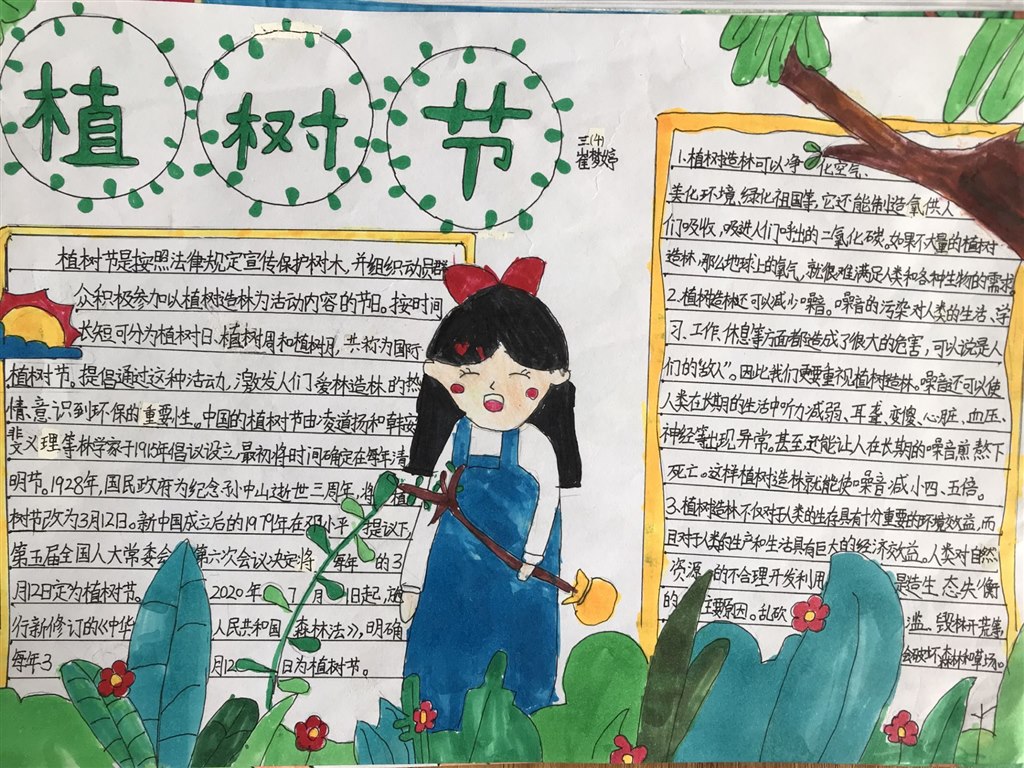 植树节
三(4)
崔梦婷
植树节是按照法律规定宣传保护树木,并组织动员群
众积极参加以植树造林为活动内容的节日。按时间
长短可分为植树日、植树周和植树月,共称为国际
植树节。提倡通过这种活动,激发人们爱林造林的热
情、意识到环保的重要性。中国的植树节由凌道扬和韩安、
裴义理等林学家于1915年倡议设立,最初将时间确定在每年清
明节。1928年,国民政府为纪念孙中山逝世三周年,将植
树节改为3月12日。新中国成立后的1979年在邓小平提议下,
第五届全国人大常委会第六次会议决定将每年的3
月12日定为植树节。2020年7月1日起,施
行新修订的《中华人民共和国森林法》,明确
每年3月12日为植树节。
1.植树造林可以净化空气、
美化环境、绿化祖国等,它还能制造氧供人
们吸收,吸进人们呼出的二氧化碳,如果不大量的植树
造林,那么地球上的氧气,就很难满足人类和各种生物的需求。
2.植树造林还可以减少噪音。噪音的污染对人类的生活、学
习、工作、休息等方面都造成了很大的危害,可以说是人
们的"敌人"。因此我们更要重视植树造林。噪音还可以使
人类在长期的生活中听力减弱、耳聋、变傻、心脏、血压、
神经等出现异常,甚至还能让人在长期的噪音煎熬下
死亡。这样植树造林就能使噪音减小四、五倍。
3.植树造林不仅对于人类的生存具有十分重要的环境效益,而
且对于人类的生产和生活具有巨大的经济效益。人类对自然
资源的不合理开发利用是造生态失衡
的主要原因。乱砍滥、毁林开荒等
会破坏森林和草场。